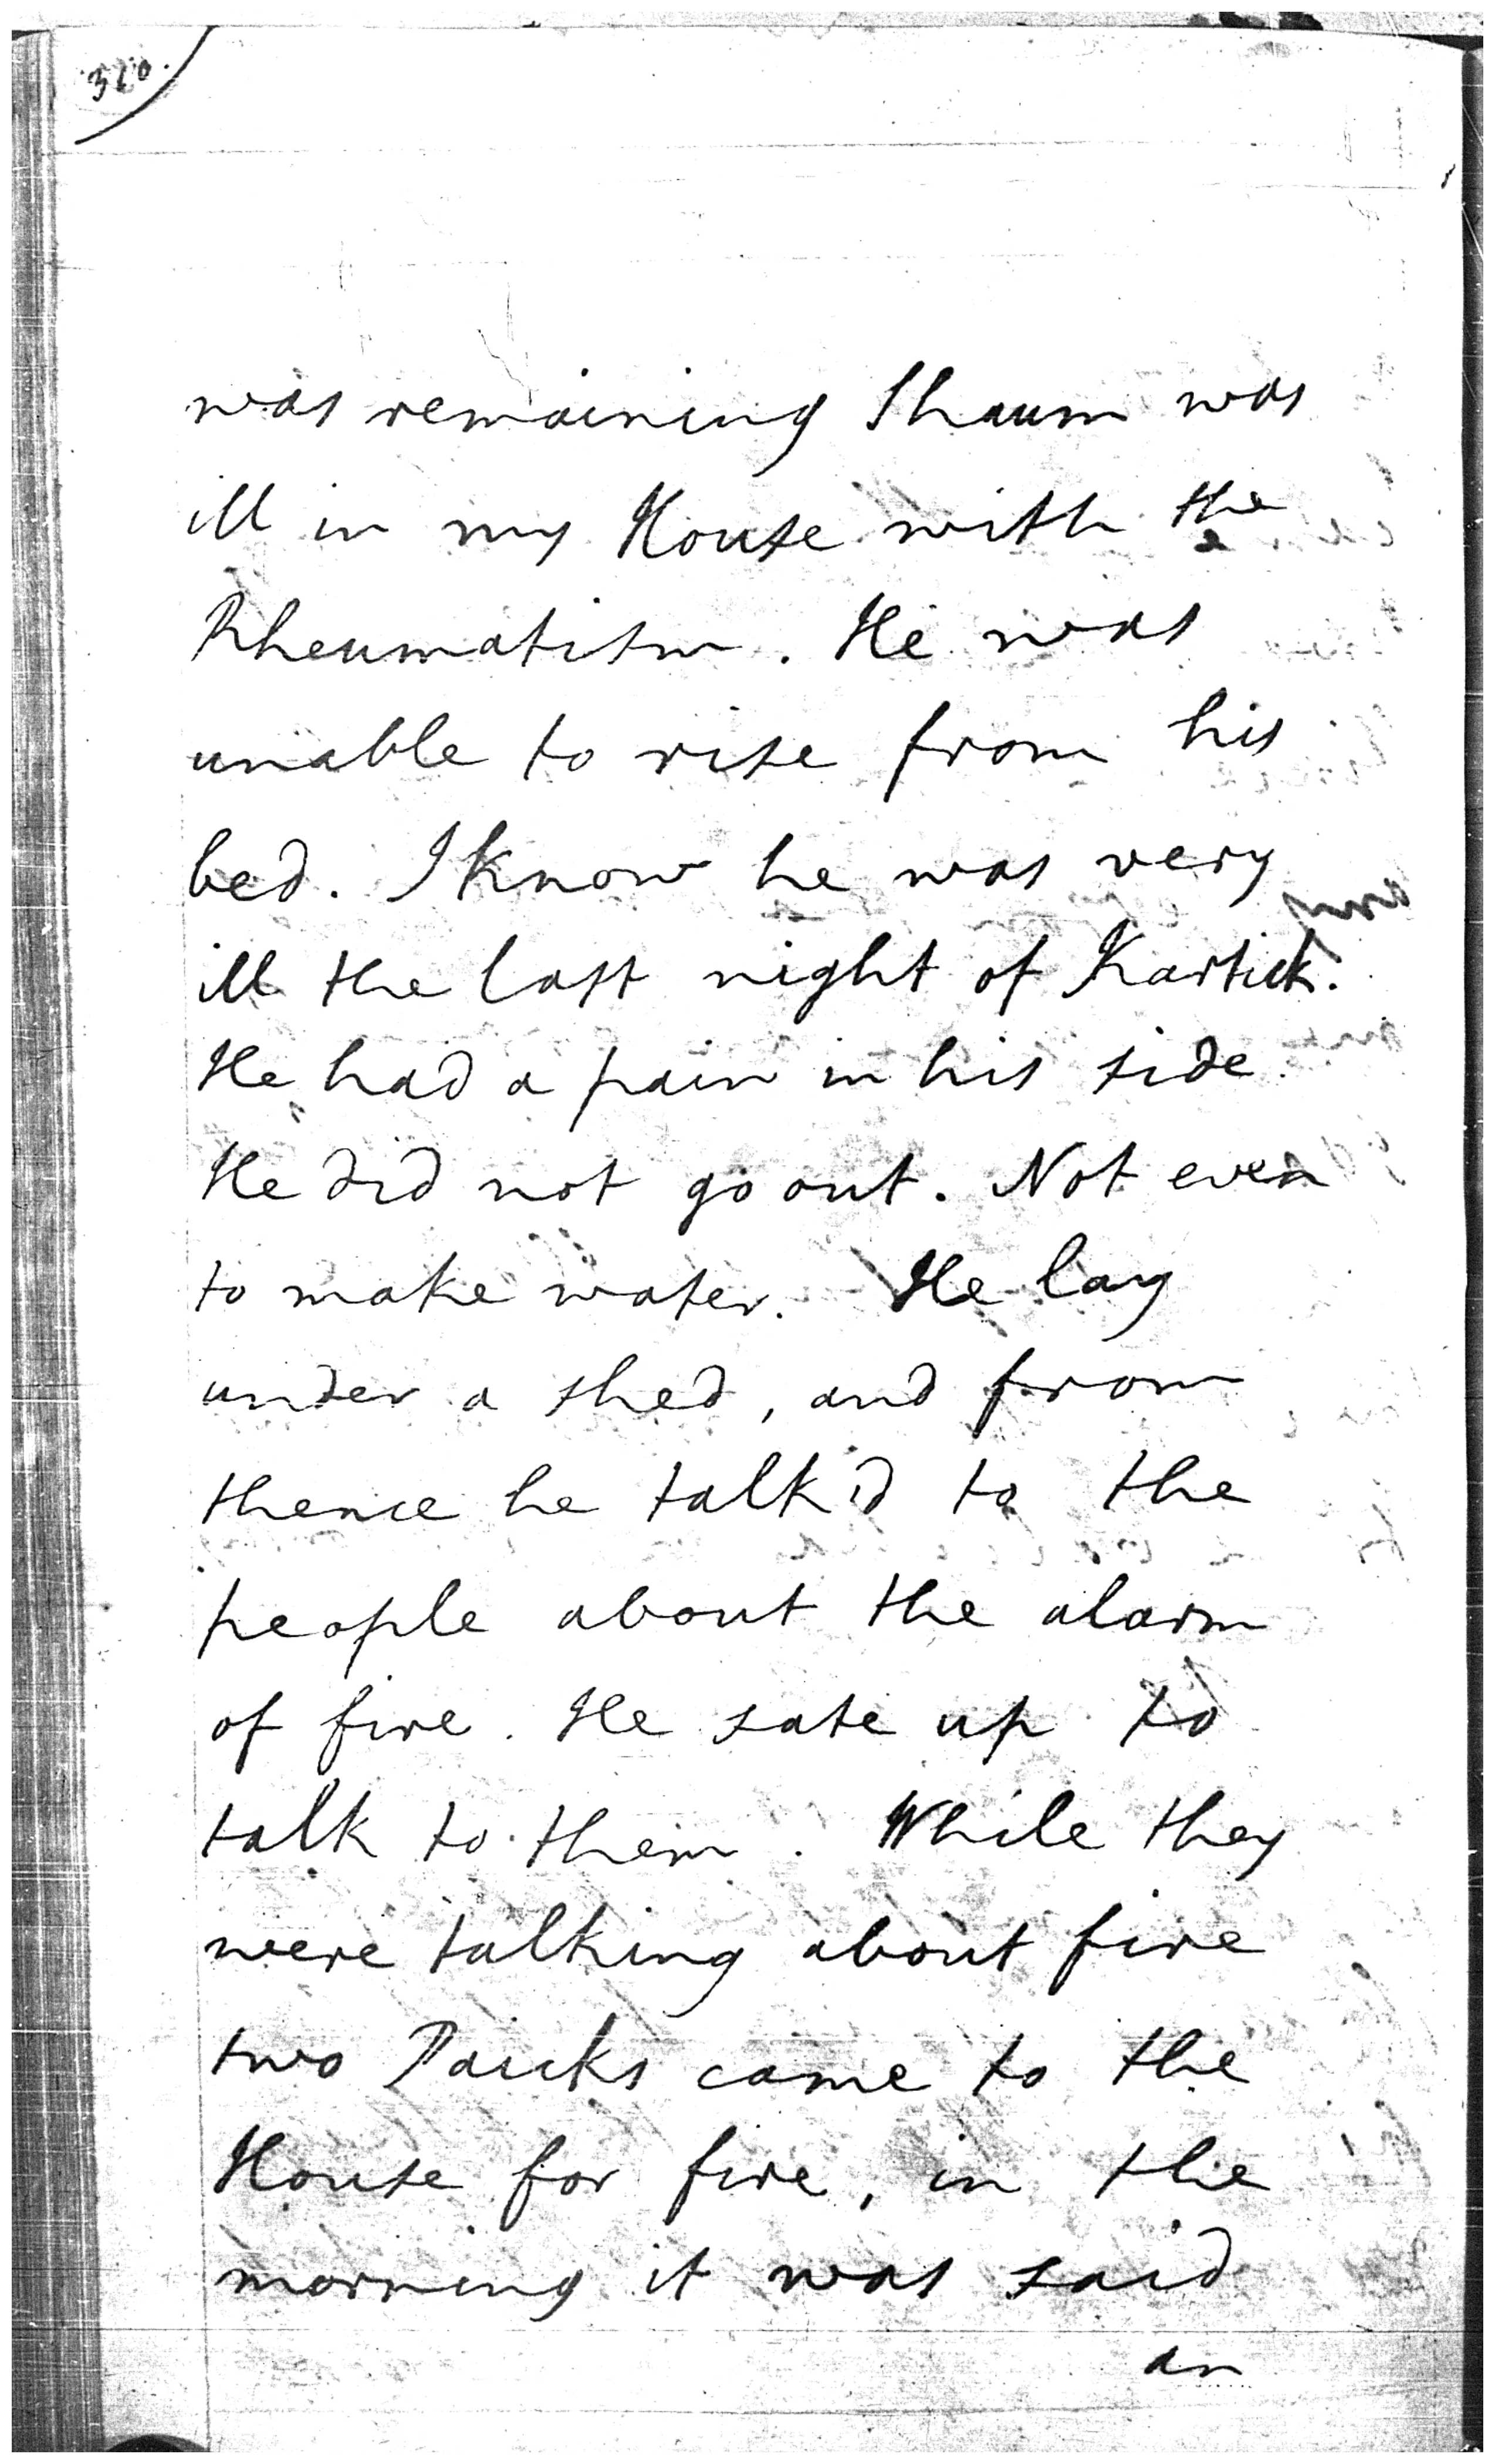 320.
was remaining Shaum was
ill in my House with the
Rheumatism. He was
unable to rise from his
bed. I know he was very
ill the last night of Kartick.
He had a pain in his side
He did not go out. Not even
to make water. He lay
under a shed, and from
thence he talk'd to the
people about the alarm
of fire. He sate up to
talk to them. While they
were talking about fire
two Paicks came to the
House for fire, in the
morning it was said
an